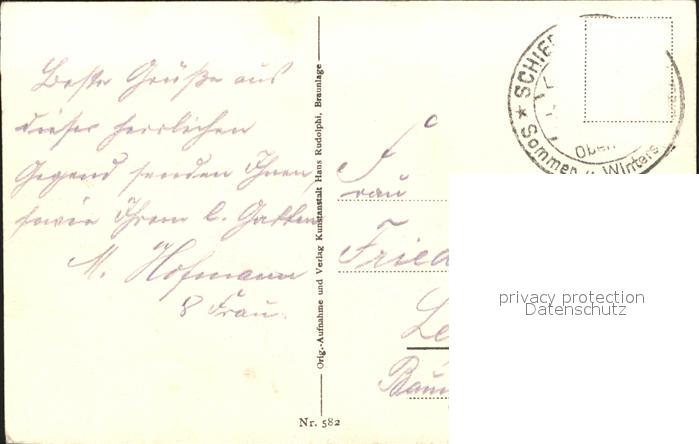 Beste Grüße aus
dieser herrlichen
Gegend senden Ihnen,
sowie Ihrem l. Gatten
M. Hofmann
& Frau.
Orig.-Aufnahme und Verlag Kunstanstalt Hans Rudolphi, Braunlage
Nr. 582
SCHIE
Ober
* Sommer u. Winters
Frau
Fried
Le
privacy protection
Datenschutz